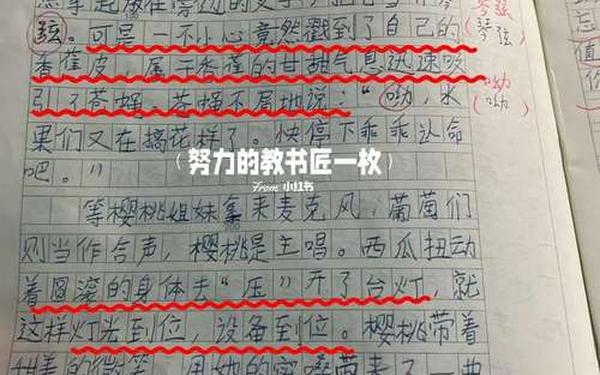 弦。可是一不小心竟然戳到了自己的 琴弦
香蕉皮，属于香蕉的甘甜气息迅速吸
引了苍蝇。苍蝇不屑地说："呦，水 呦
果们又在搞花样了。快停下乖乖认命
吧。"
（努力的教书匠一枚）
From 小红书
等樱桃姐妹拿来麦克风，葡萄们
则当作合声，樱桃是主唱。西瓜扭动
着圆滚的身体去"压"开了台灯，就
这样灯光到位，设备到位。樱桃带着